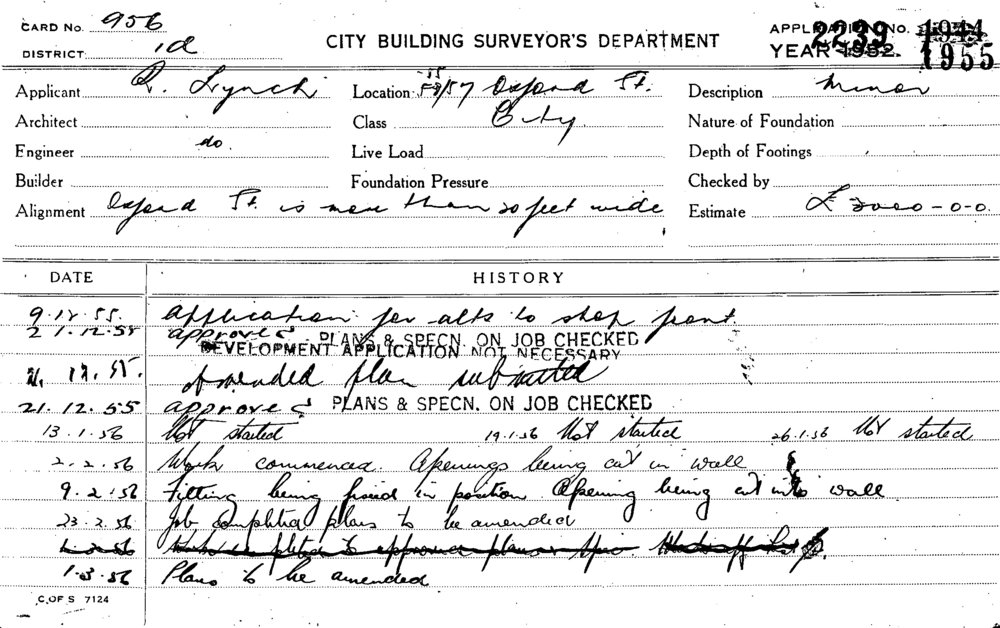 CARD No. 956
DISTRICT 1d
CITY BUILDING SURVEYOR'S DEPARTMENT
APPLICATION No. 2239 1944
YEAR 1952. 1955
Applicant R. Lynch Location 55/57 Oxford St. Description Minor
Architect Class City. Nature of Foundation
Engineer do. Live Load Depth of Footings
Builder Foundation Pressure Checked by
Alignment Oxford St. is more than 20 feet wide Estimate £ 2000-0-0.
DATE HISTORY
9.12.55. Application for alts to shop front
21.12.55 approved PLANS & SPECN. ON JOB CHECKED
DEVELOPMENT APPLICATION NOT NECESSARY
12.55. Amended plan submitted
21.12.55 approved PLANS & SPECN. ON JOB CHECKED
13.1.56 Not started 19.1.56 Not started 26.1.56 Not started
2.2.56 Work commenced. Openings being cut in wall
9.2.56 Fitting being fixed in position Opening being cut into wall
23.2.56 Job completed plans to be amended
1.3.56 Plans to be amended
C.OF S 7124